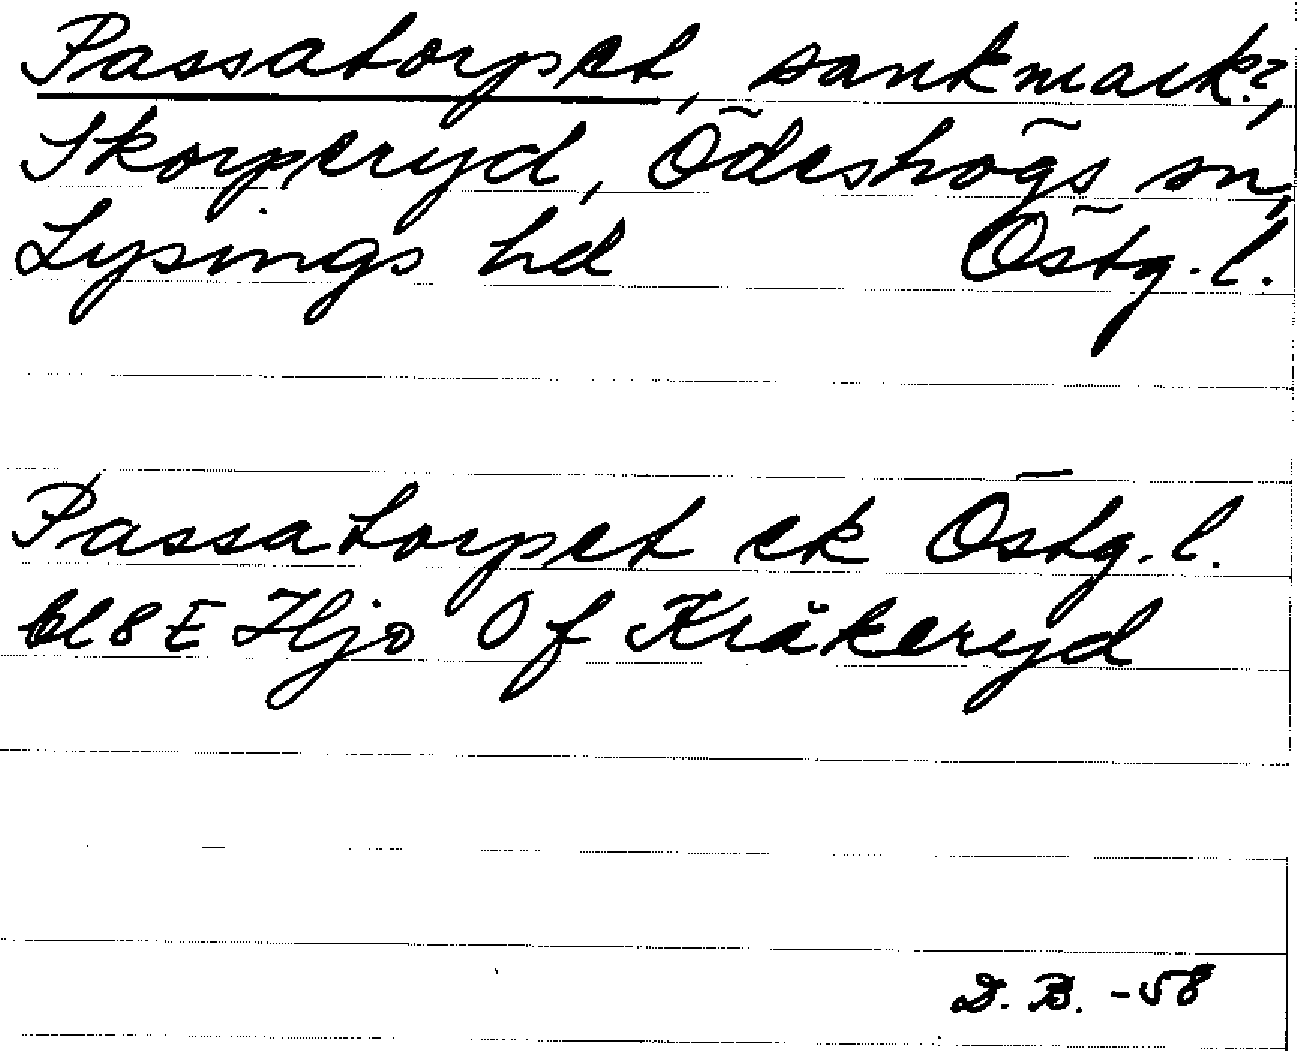 Passatorpet, sankmark?,
Skorperyd, Ödeshögs sn,
Lysings hd Östg. l.
Passatorpet ek Östg. l.
bl 8 E Hjo 0 f Kråkeryd
D. B. -58